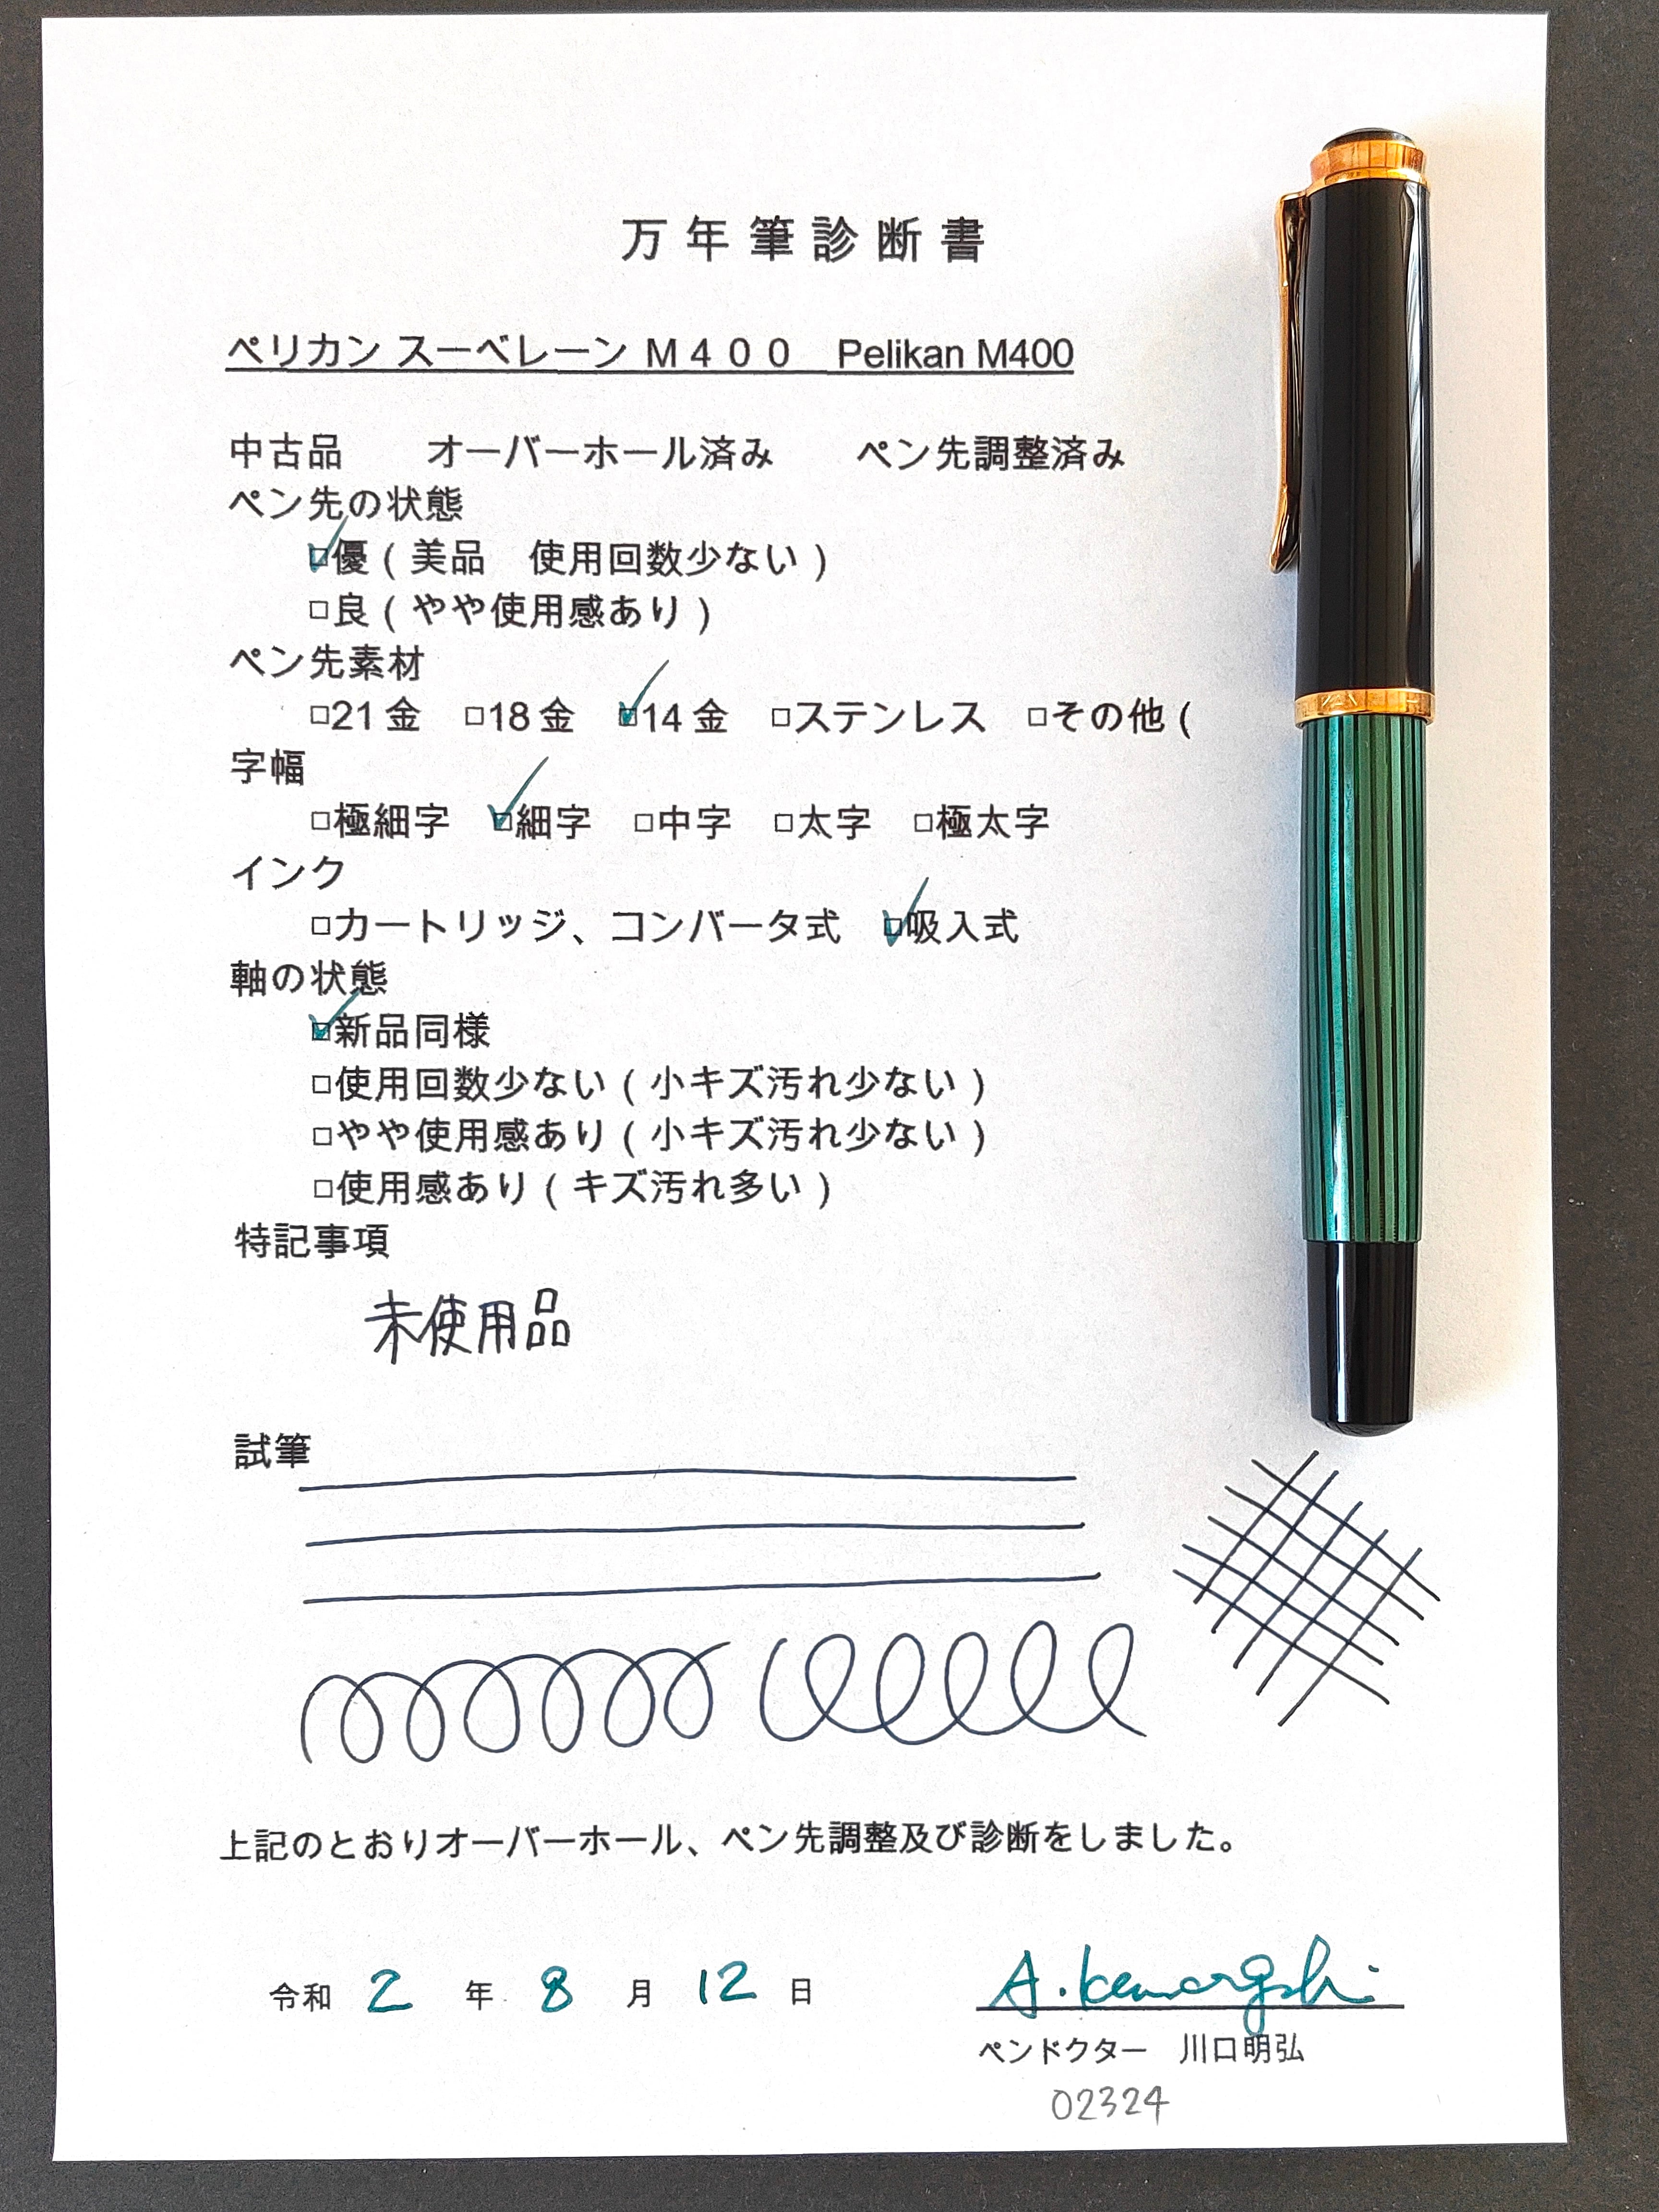 万年筆診断書
ペリカン スーベレーン M400　Pelikan M400
中古品　オーバーホール済み　ペン先調整済み
ペン先の状態
☑優（美品　使用回数少ない）
□良（やや使用感あり）
ペン先素材
□21金　□18金　☑14金　□ステンレス　□その他（
字幅
□極細字　☑細字　□中字　□太字　□極太字
インク
□カートリッジ、コンバータ式　☑吸入式
軸の状態
☑新品同様
□使用回数少ない（小キズ汚れ少ない）
□やや使用感あり（小キズ汚れ少ない）
□使用感あり（キズ汚れ多い）
特記事項
未使用品
試筆
上記のとおりオーバーホール、ペン先調整及び診断をしました。
令和 2 年 8 月 12 日
ペンドクター　川口明弘
02324